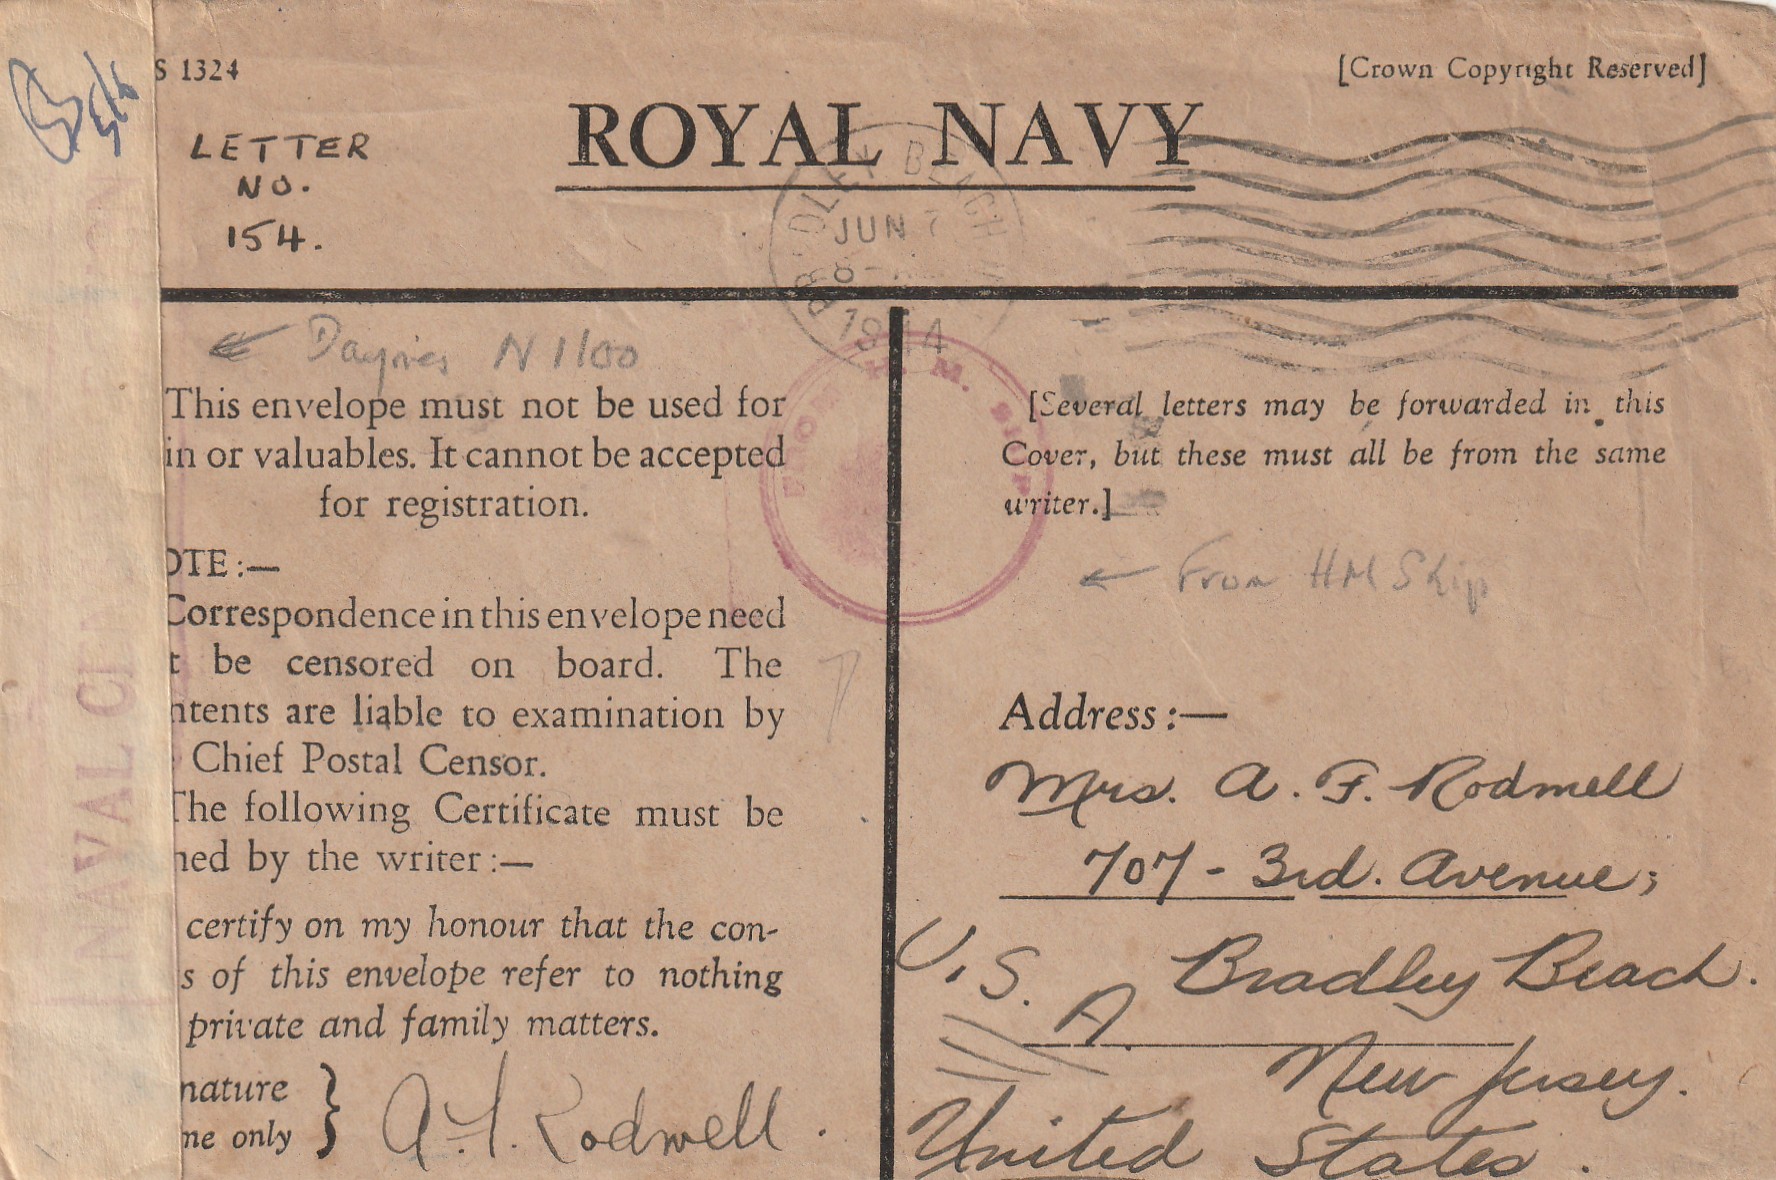 S 1324
[Crown Copyright Reserved]
ROYAL NAVY
LETTER
NO.
154.
BRADLEY BEACH
JUN 7
8
1944
← N 1/100
This envelope must not be used for
in or valuables. It cannot be accepted
for registration.
OTE :—
Correspondence in this envelope need
t be censored on board. The
ntents are liable to examination by
Chief Postal Censor.
The following Certificate must be
ned by the writer :—
certify on my honour that the con-
s of this envelope refer to nothing
private and family matters.
nature
ne only } A. F. Rodwell.
NAVAL CEN
FROM H. M. SHIP
[Several letters may be forwarded in this
Cover, but these must all be from the same
writer.]
← From HM Ship
Address :—
Mrs. A. F. Rodmell
707 - 3rd. Avenue;
Bradley Beach.
U. S. A.
New Jersey.
United States.